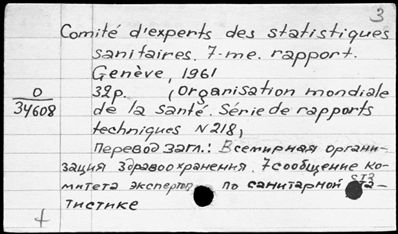 3
Comité d'experts des statistiques
sanitaires. 7-me. rapport.
Genève, 1961
32p. (Organisation mondiale
de la santé. Série de rapports
techniques N 218)
О
34608
Перевод загл.: Всемирная органи-
зация здравоохранения. 7 сообщение ко-
митета экспертов по санитарной ста-
тистике